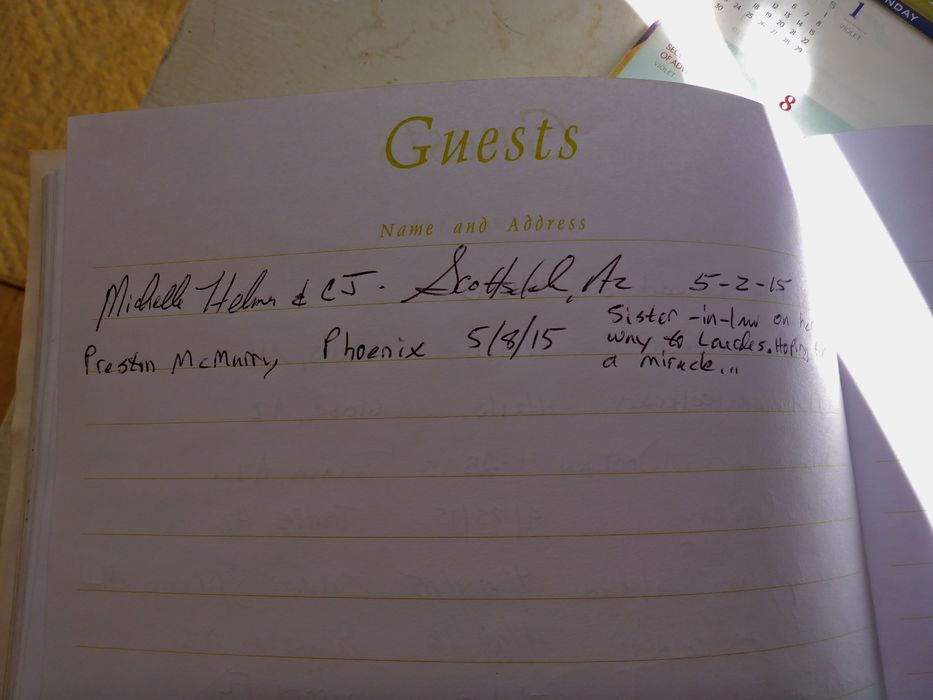 Guests
Name and Address
Michelle Helm & CJ. Scottsdale, Az 5-2-15
Preston McMurry, Phoenix 5/8/15 Sister-in-law on
way to Lourdes. Hoping
a miracle...
1
VIOLET
NDAY
OF ADV
VIOLET
8